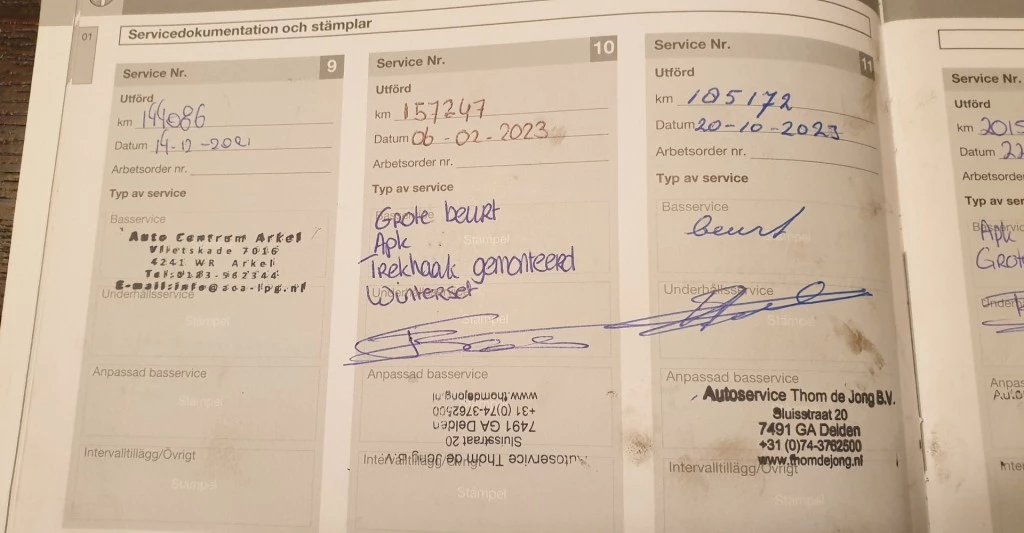 01
Servicedokumentation och stämplar
Service Nr. 9
Utförd
km 144086
Datum 14-12-2021
Arbetsorder nr.
Typ av service
Basservice
Auto Centrum Arkel
Vlietskade 7016
4241 WR Arkel
Tel: 0183-562344
E-mail: info@aca-lpg.nl
Underhållsservice
Stämpel
Anpassad basservice
Stämpel
Intervalltillägg/Övrigt
Stämpel
Service Nr. 10
Utförd
km 157247
Datum 06-02-2023
Arbetsorder nr.
Typ av service
Grote beurt
Apk
Stämpel
Trekhaak gemonteerd
Winterset
Stämpel
Anpassad basservice
Autoservice Thom de Jong B.V.
Sluisstraat 20
7491 GA Delden
+31 (0)74-3762500
www.thomdejong.nl
Intervalltillägg/Övrigt
Stämpel
Service Nr. 11
Utförd
km 185172
Datum 20-10-2023
Arbetsorder nr.
Typ av service
Basservice
beurt
Underhållsservice
Stämpel
Anpassad basservice
Autoservice Thom de Jong B.V.
Sluisstraat 20
7491 GA Delden
+31 (0)74-3762500
www.thomdejong.nl
Intervalltillägg/Övrigt
Stämpel
Service Nr.
Utförd
km 2015
Datum 22
Arbetsorder
Typ av ser
Apk
Grot
Anpas
Inter